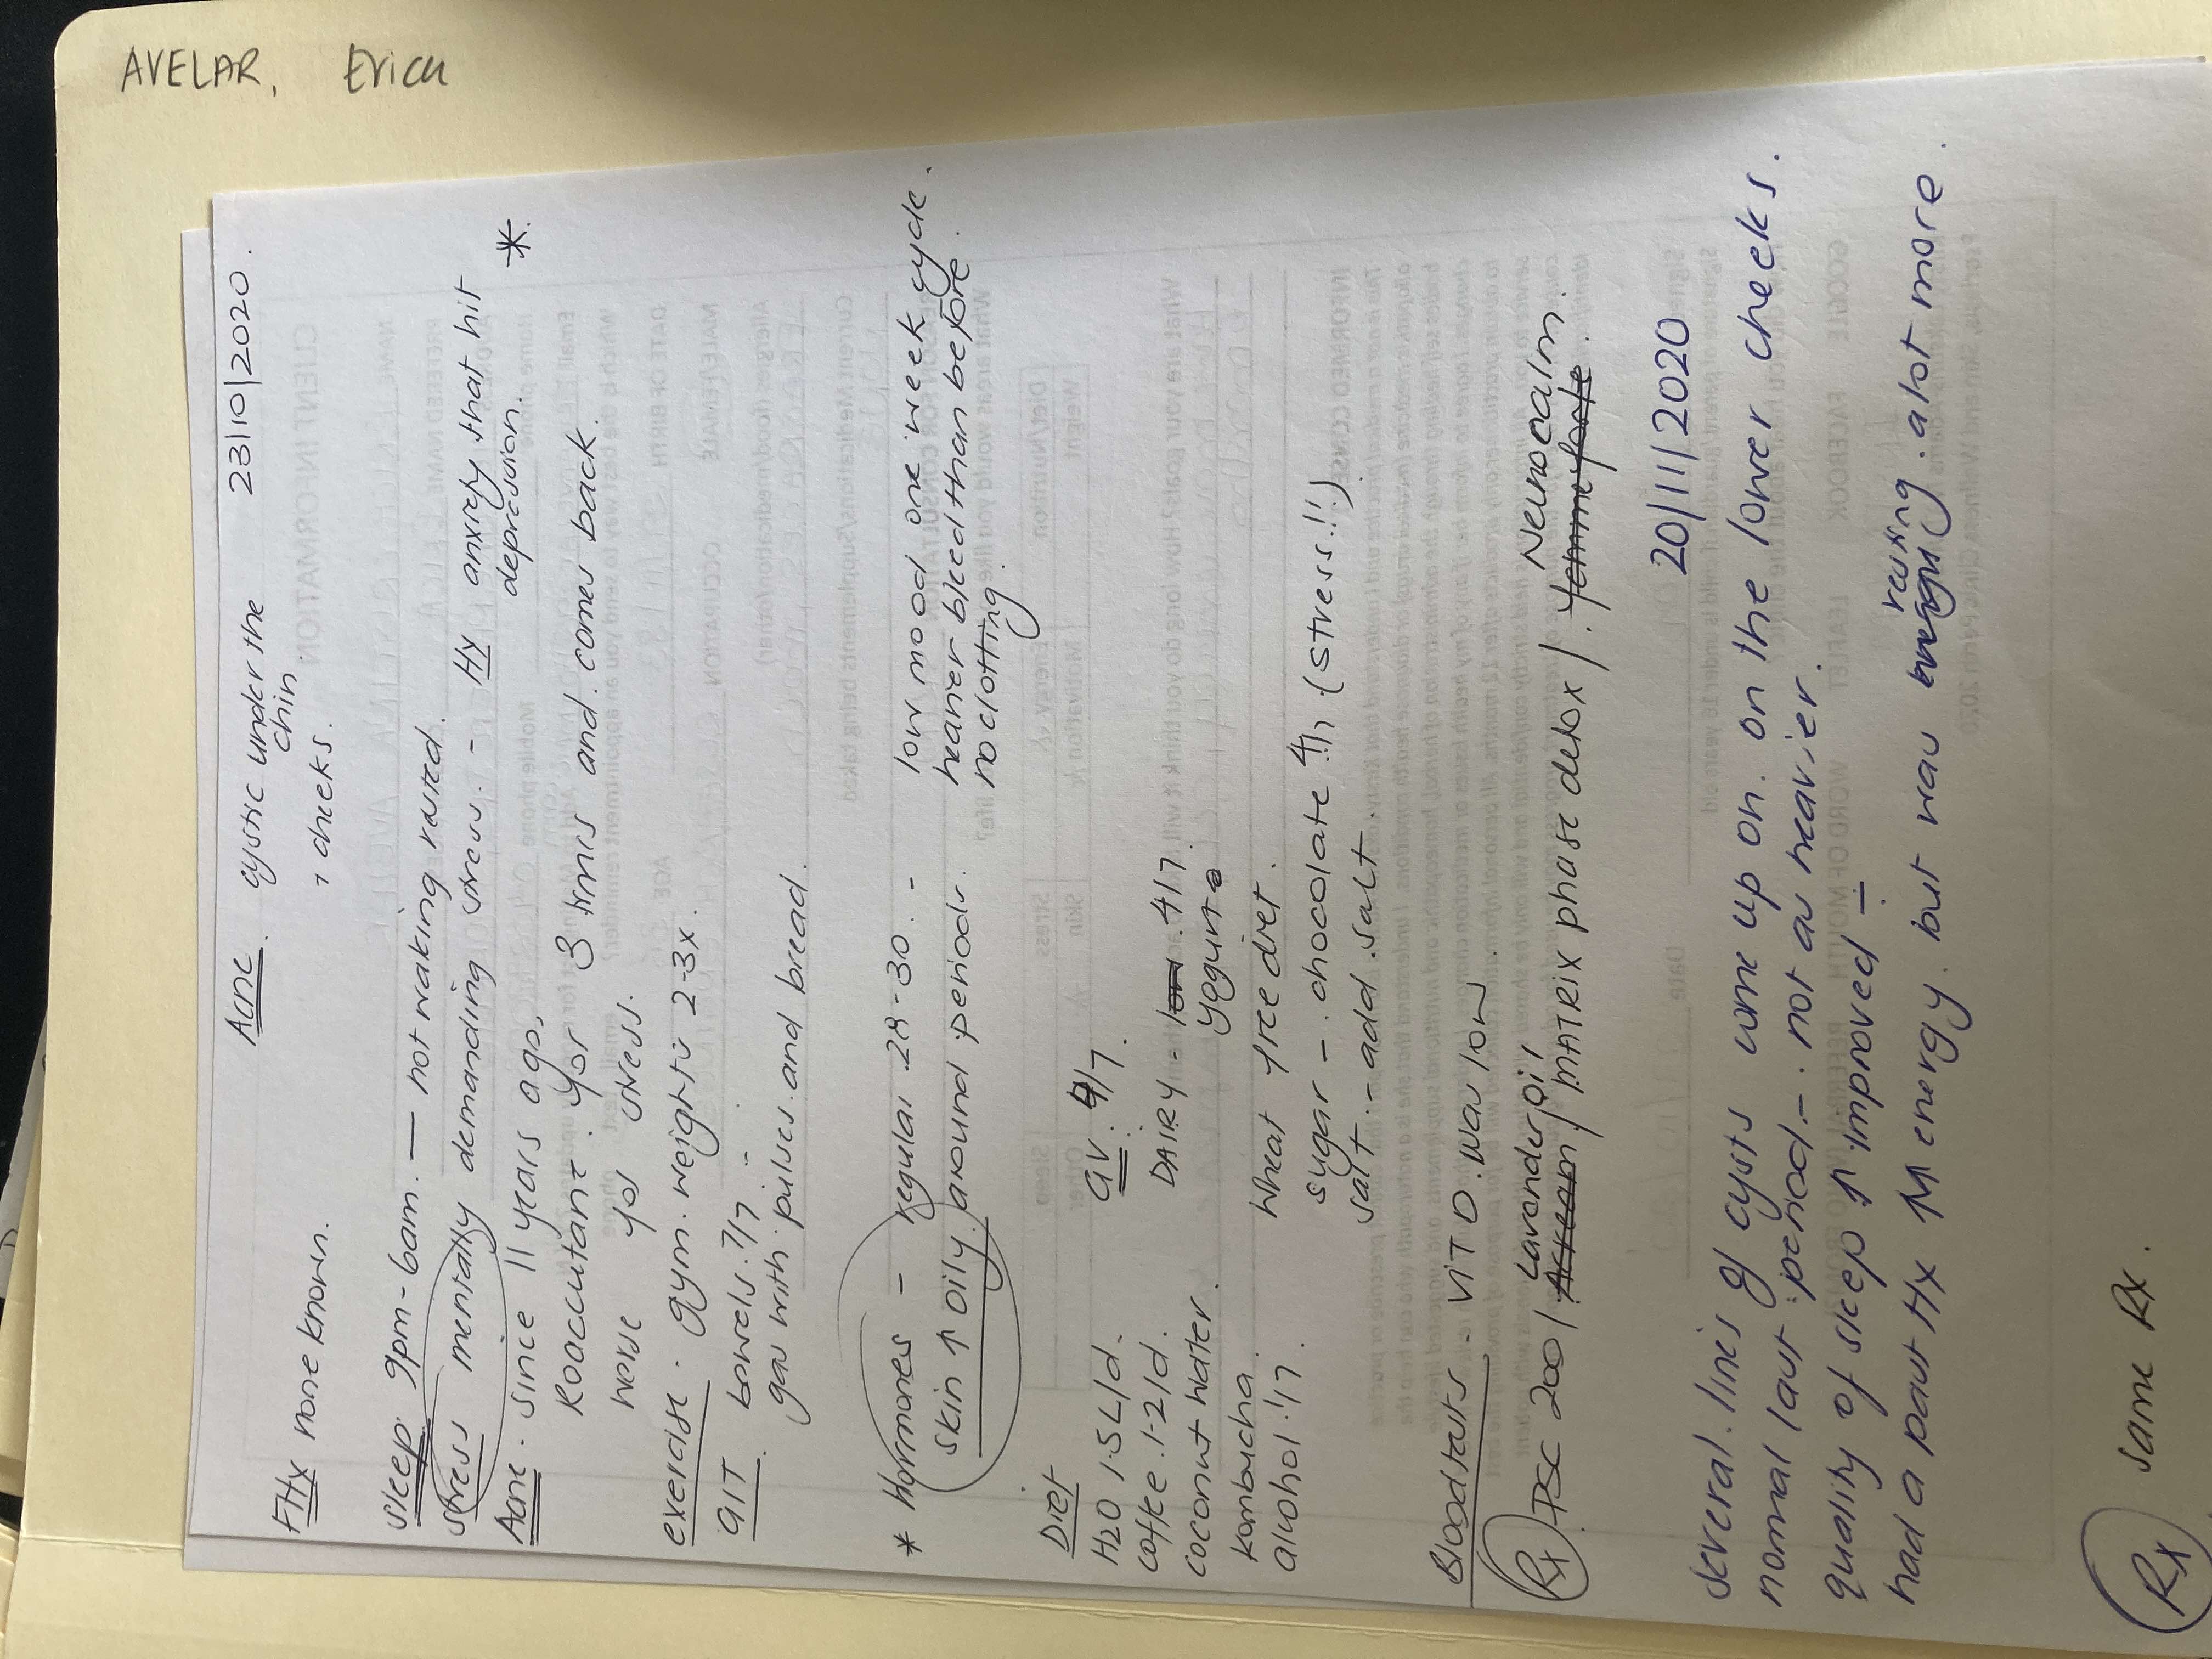 AVELAR, Erica
Acne. cystic under the 23/10/2020.
chin
FHx none known. , cheeks.
sleep: 9pm-6am. — not waking rested.
stress mentally demanding stress. - Hx anxiety that hit
depression. *
Acne. since 11 years ago,
Roaccutane. for 3 times and comes back.
worse for stress.
exercise. gym. weights 2-3x.
GIT. bowels. 7/7 -
gas with pulses and bread.
* Hormones - regular .28-30. - low mood one week cycle.
skin ↑ oily. around periods. heavier bleed than before.
no clotting.
Diet
H2O 1.5L/d. GV: 4/7.
coffee. 1-2/d. DAIRY - 4/7.
coconut water. yogurt
kombucha. Wheat free diet.
alcohol. 1/7. sugar - chocolate (stress!!)
salt. - add salt.
Blood tests - VIT D. was low.
Rx PSC 200 / Lavender oil / MATRIX phase detox / . Neurocalm.
femme forte.
20/11/2020
several lines of cysts come up on. on the lower cheeks.
normal last period. - not as heavier.
quality of sleep ↑ improved
had a past Hx energy. but was resting. alot more.
Rx same Rx.